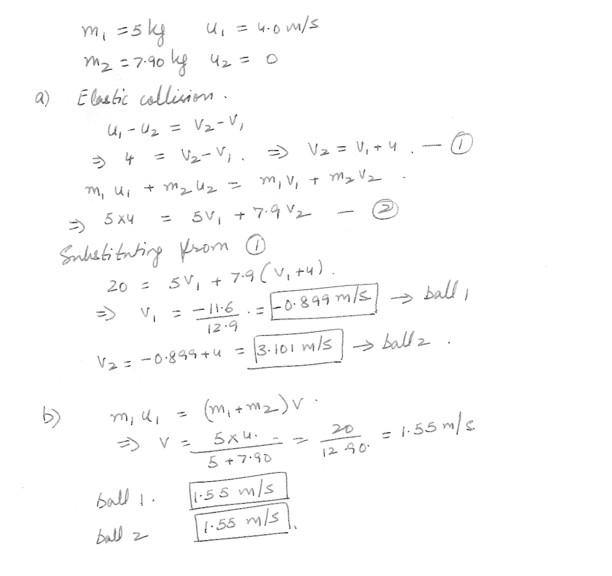 m₁ = 5 kg u₁ = 4.0 m/s
m₂ = 7.90 kg u₂ = 0
a) Elastic collision.
u₁ - u₂ = V₂ - V₁
⇒ 4 = V₂ - V₁. ⇒ V₂ = V₁ + 4. — ①
m₁ u₁ + m₂ u₂ = m₁ V₁ + m₂ V₂.
⇒ 5×4 = 5V₁ + 7.9 V₂ — ②
Substituting from ①
20 = 5V₁ + 7.9 (V₁+4).
⇒ V₁ = -11.6/12.9. = -0.899 m/s → ball 1
V₂ = -0.899+4 = 3.101 m/s → ball 2.
b) m₁ u₁ = (m₁+m₂) V.
⇒ V = 5×4./5+7.90 = 20/12.90. = 1.55 m/s
ball 1. 1.55 m/s
ball 2 1.55 m/s.